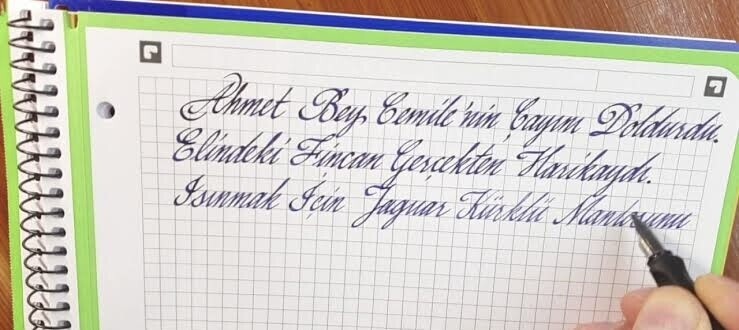 Ahmet Bey Cemile'nin Çayını Doldurdu.
Elindeki Fincan Gerçekten Harikaydı.
Isınmak İçin Jaguar Kürklü Mantosunu